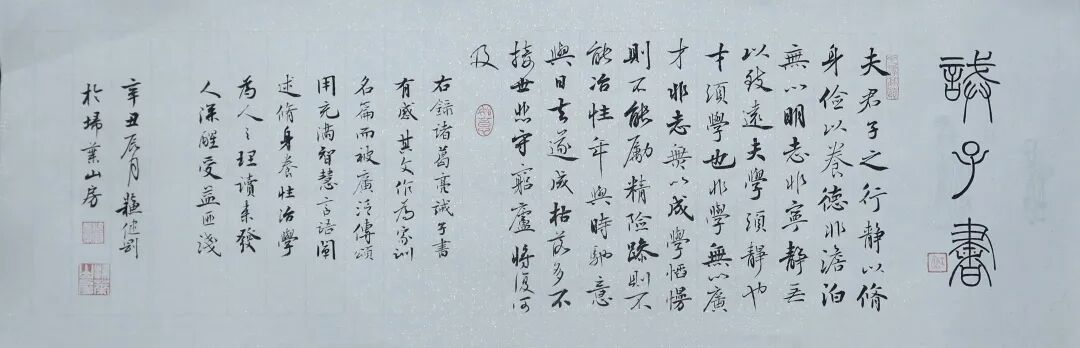 誡子書
夫君子之行靜以脩
身儉以養德非澹泊
無以明志非寧靜無
以致遠夫學須靜也
才須學也非學無以廣
才非志無以成學慆慢
則不能勵精險躁則不
能冶性年與時馳意
與日去遂成枯落多不
接世悲守窮廬將復何
及
右錄諸葛亮誡子書
有感其文作為家訓
名篇而被廣泛傳頌
用充滿智慧言語闡
述脩身養性治學
為人之理讀來發
人深醒受益匪淺
辛丑辰月
於埽葉山房